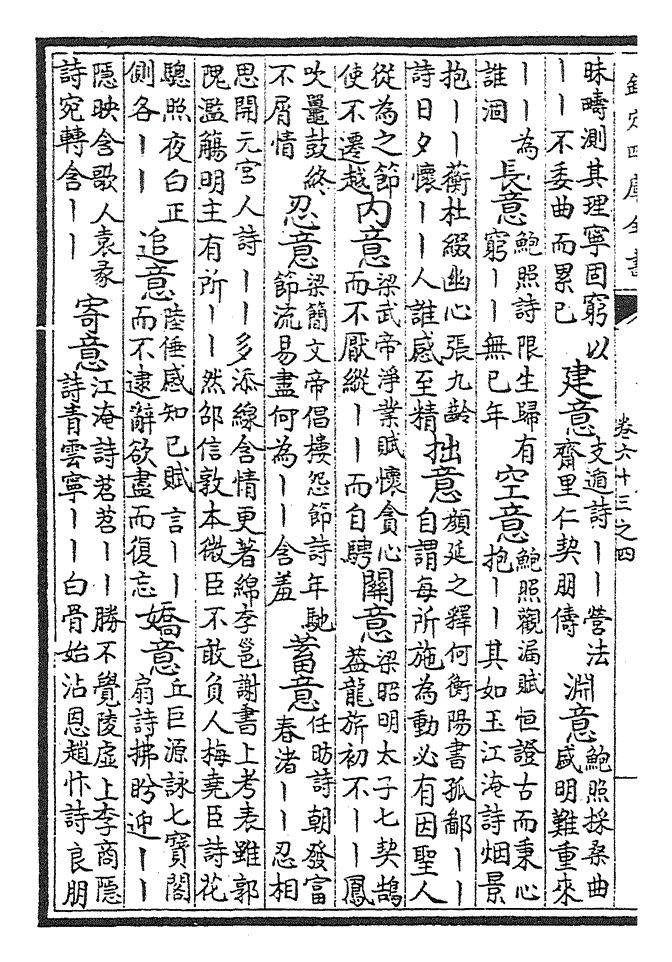 欽定四庫全書
卷六十三之四
昧疇測其理寧固窮以
｜｜不委曲而累已
建意
支遁詩｜｜營法
齊里仁契朋儔
淵意
鮑照採桑曲
盛明難重來
｜｜為
誰涸
長意
鮑照詩限生歸有
窮｜｜無已年
空意
鮑照觀漏賦恒證古而秉心
抱｜｜其如玉江淹詩烟景
抱｜｜蘅杜綴幽心張九齡
詩日夕懷｜｜人誰感至精
拙意
顔延之釋何衡陽書孤鄙｜｜
自謂每所施為動必有因聖人
從為之節
使不遷越
内意
梁武帝淨業賦懷貪心
而不厭縱｜｜而自騁
關意
梁昭明太子七契鵠
蓋龍旂初不｜｜鳳
吹鼉鼓終
不屑情
忍意
梁簡文帝倡樓怨節詩年馳
節流易盡何為｜｜含羞
蓄意
任昉詩朝發富
春渚｜｜忍相
思開元宮人詩｜｜多添線含情更著綿李邕謝書上考表雖郭
隗濫觴明主有所｜｜然邵信敦本微臣不敢負人梅堯臣詩花
驄照夜白正
側各｜｜
追意
陸倕感知已賦言｜｜
而不逮辭欲盡而復忘
嬌意
丘巨源詠七寶閣
扇詩拂盻迎｜｜
隱映含歌人袁彖
詩宛轉含｜｜
寄意
江淹詩苕苕｜｜勝不覺陵虛上李商隱
詩青雲寧｜｜白骨始沾恩趙忭詩良朋